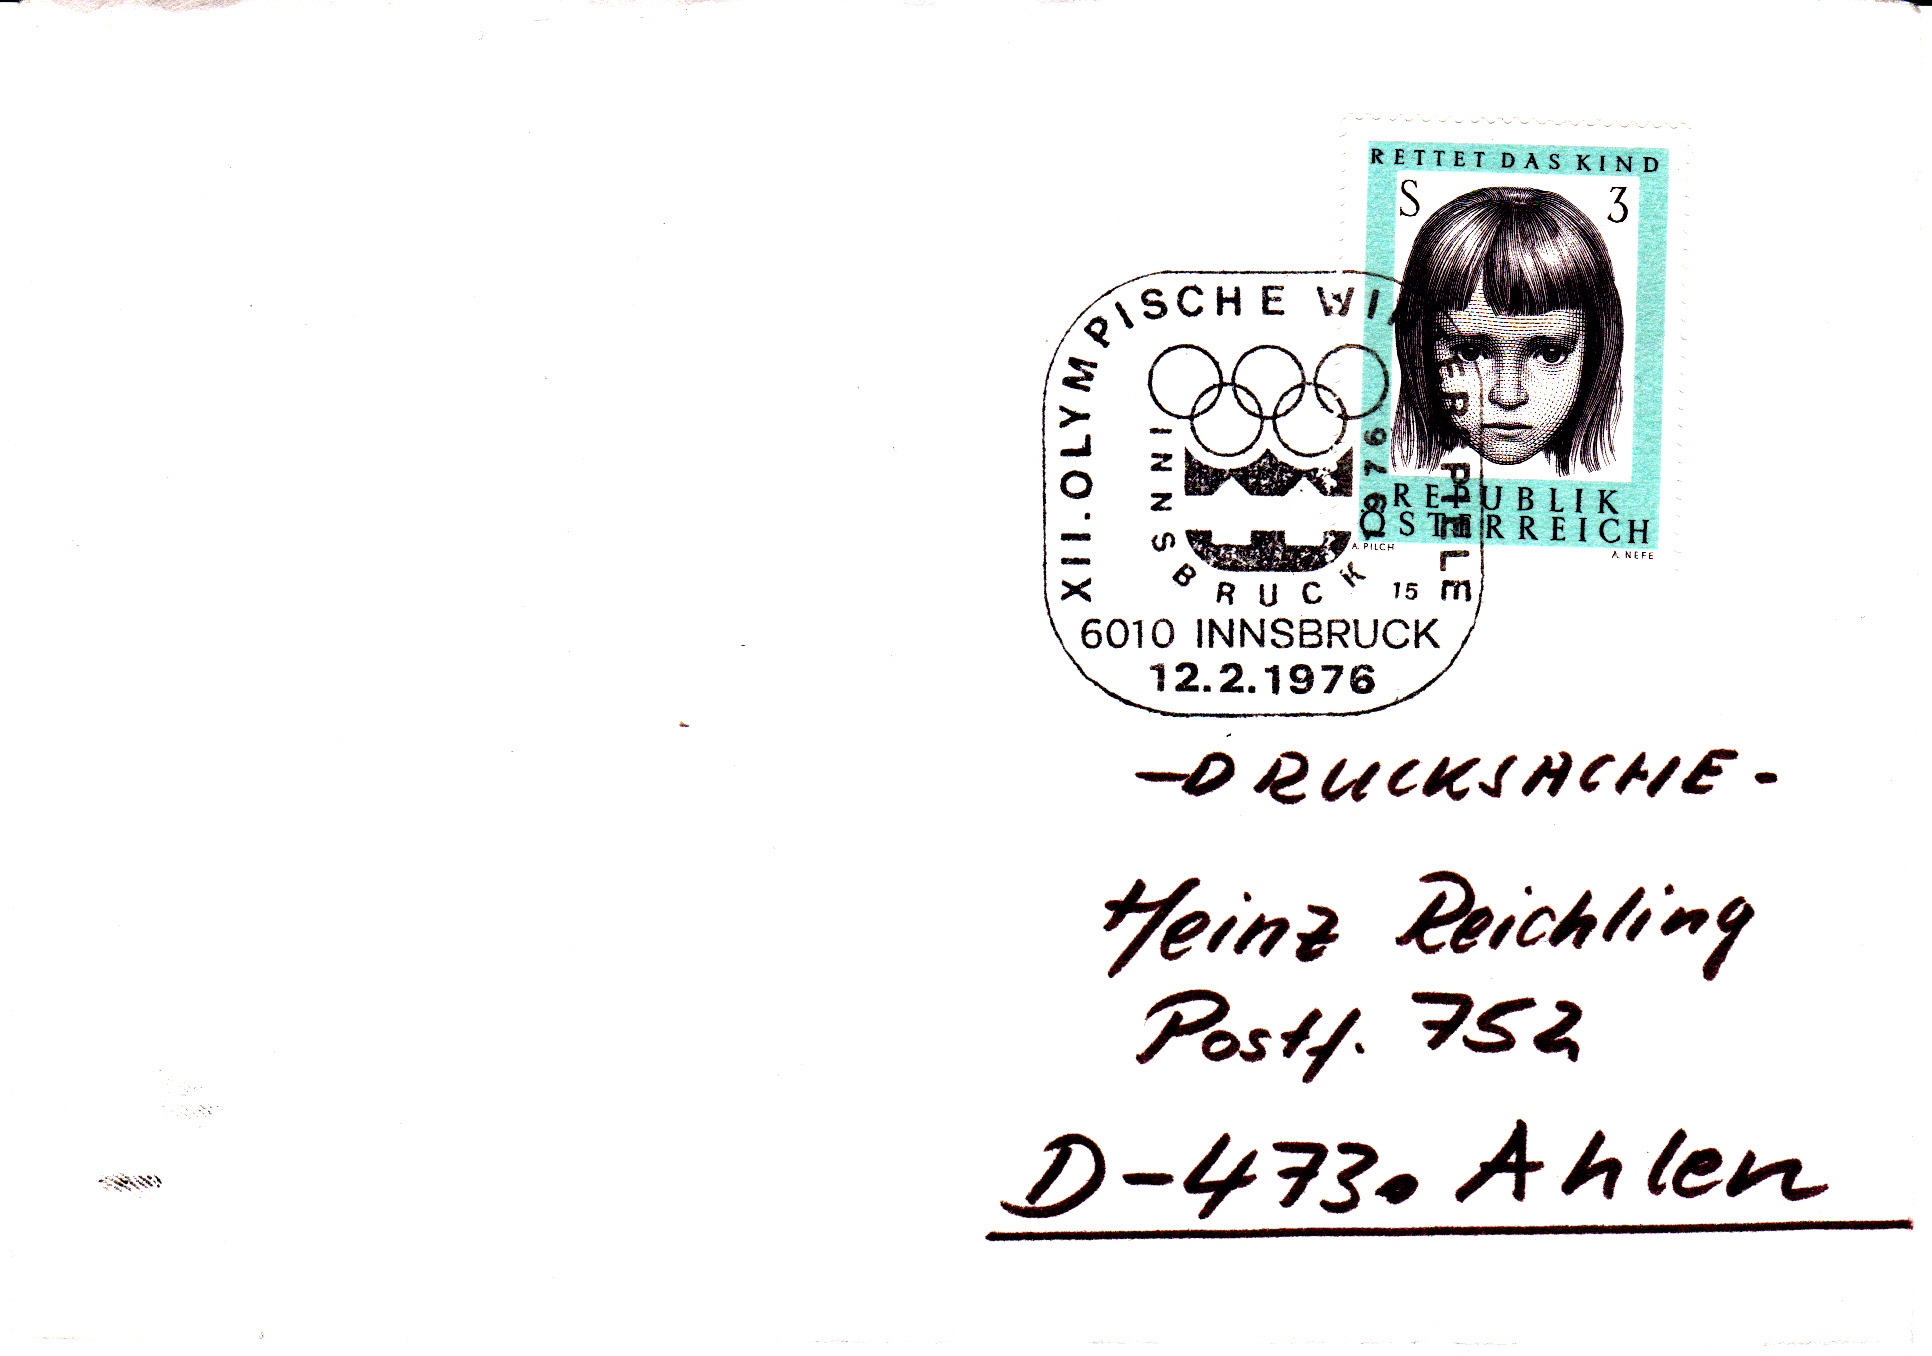 RETTET DAS KIND
S 3
REPUBLIK
ÖSTERREICH
A. PILCH
A. NEFE
XII. OLYMPISCHE WINTERSPIELE
INNSBRUCK 1976
15
6010 INNSBRUCK
12.2.1976
-DRUCKSACHE-
Heinz Reichling
Postf. 752
D-473. Ahlen